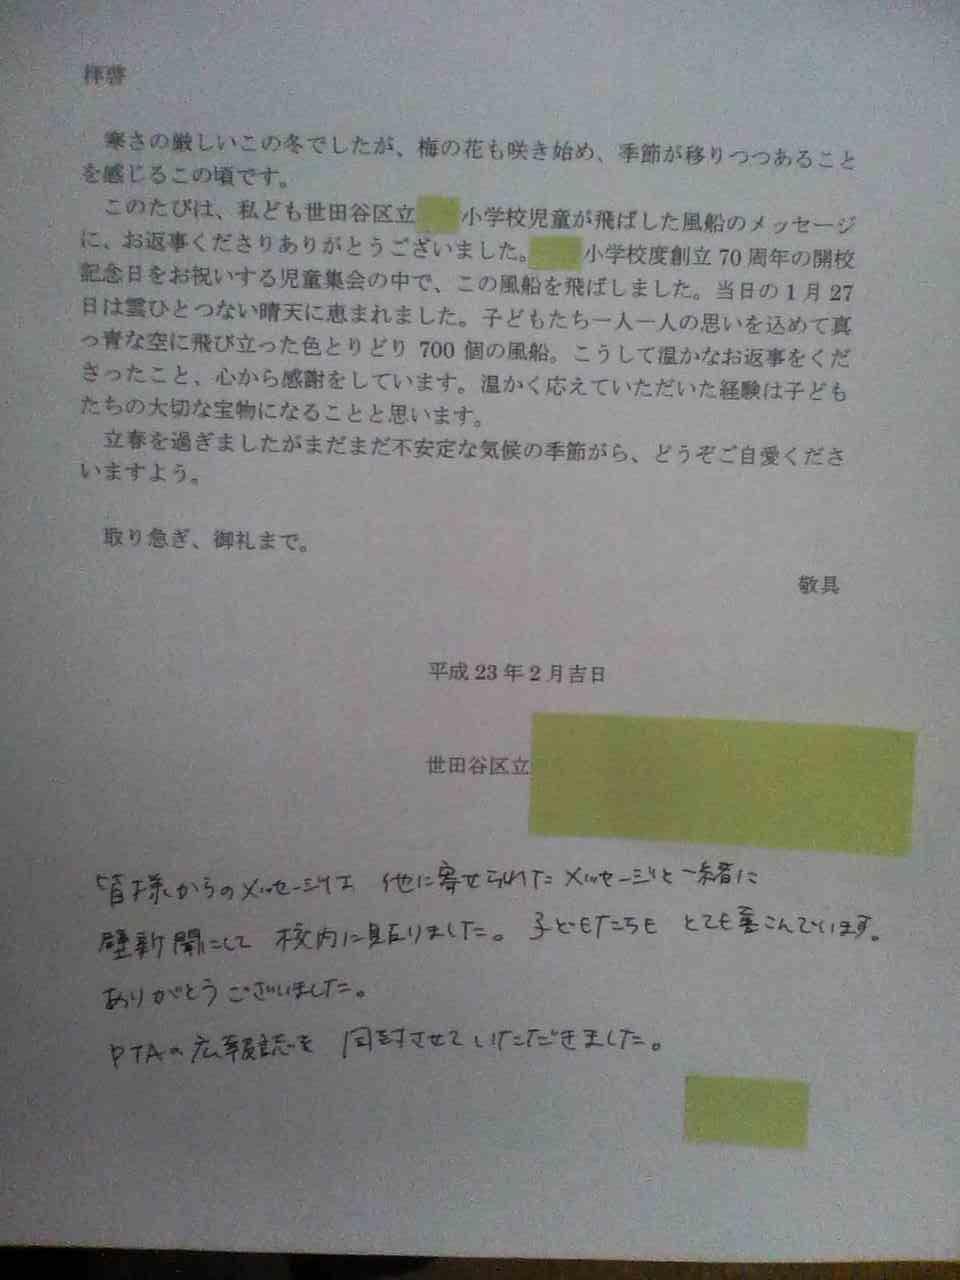 拝啓
寒さの厳しいこの冬でしたが、梅の花も咲き始め、季節が移りつつあること
を感じるこの頃です。
このたびは、私ども世田谷区立 小学校児童が飛ばした風船のメッセージ
に、お返事くださりありがとうございました。 小学校度創立 70 周年の開校
記念日をお祝いする児童集会の中で、この風船を飛ばしました。当日の 1 月 27
日は雲ひとつない晴天に恵まれました。子どもたち一人一人の思いを込めて真
っ青な空に飛び立った色とりどり 700 個の風船。こうして温かなお返事をくだ
さったこと、心から感謝をしています。温かく応えていただいた経験は子ども
たちの大切な宝物になることと思います。
立春を過ぎましたがまだまだ不安定な気候の季節がら、どうぞご自愛くださ
いますよう。
取り急ぎ、御礼まで。
敬具
平成 23 年 2 月吉日
世田谷区立
皆様からのメッセージは 他に寄せられたメッセージと一緒に
壁新聞にして 校内に貼りました。子どもたちも とても喜こんでいます。
ありがとうございました。
PTAの広報誌を 同封させていただきました。